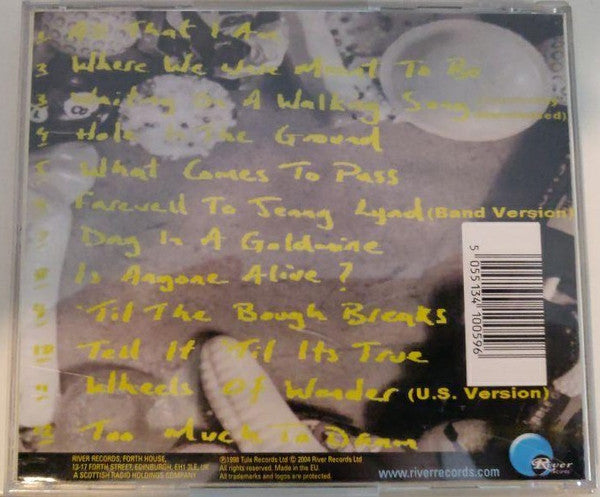 1 All That I Am
3 Where We Were Meant To Be
3 Waiting On A Walking Song
4 Hole In The Ground
5 What Comes To Pass
6 Farewell To Jenny Lynd (Band Version)
7 Day In A Goldmine
8 Is Anyone Alive?
9 'Til The Bough Breaks
10 Tell It 'Til Its True
11 Wheels Of Wonder (U.S. Version)
Too Much To Damn
5 055134 100596
RIVER RECORDS, FORTH HOUSE,
13-17 FORTH STREET, EDINBURGH, EH1 3LE, UK
A SCOTTISH RADIO HOLDINGS COMPANY
℗1998 Tula Records Ltd © 2004 River Records Ltd
All rights reserved. Made in the EU.
All trademarks and logos are protected.
www.riverrecords.com
River
Records